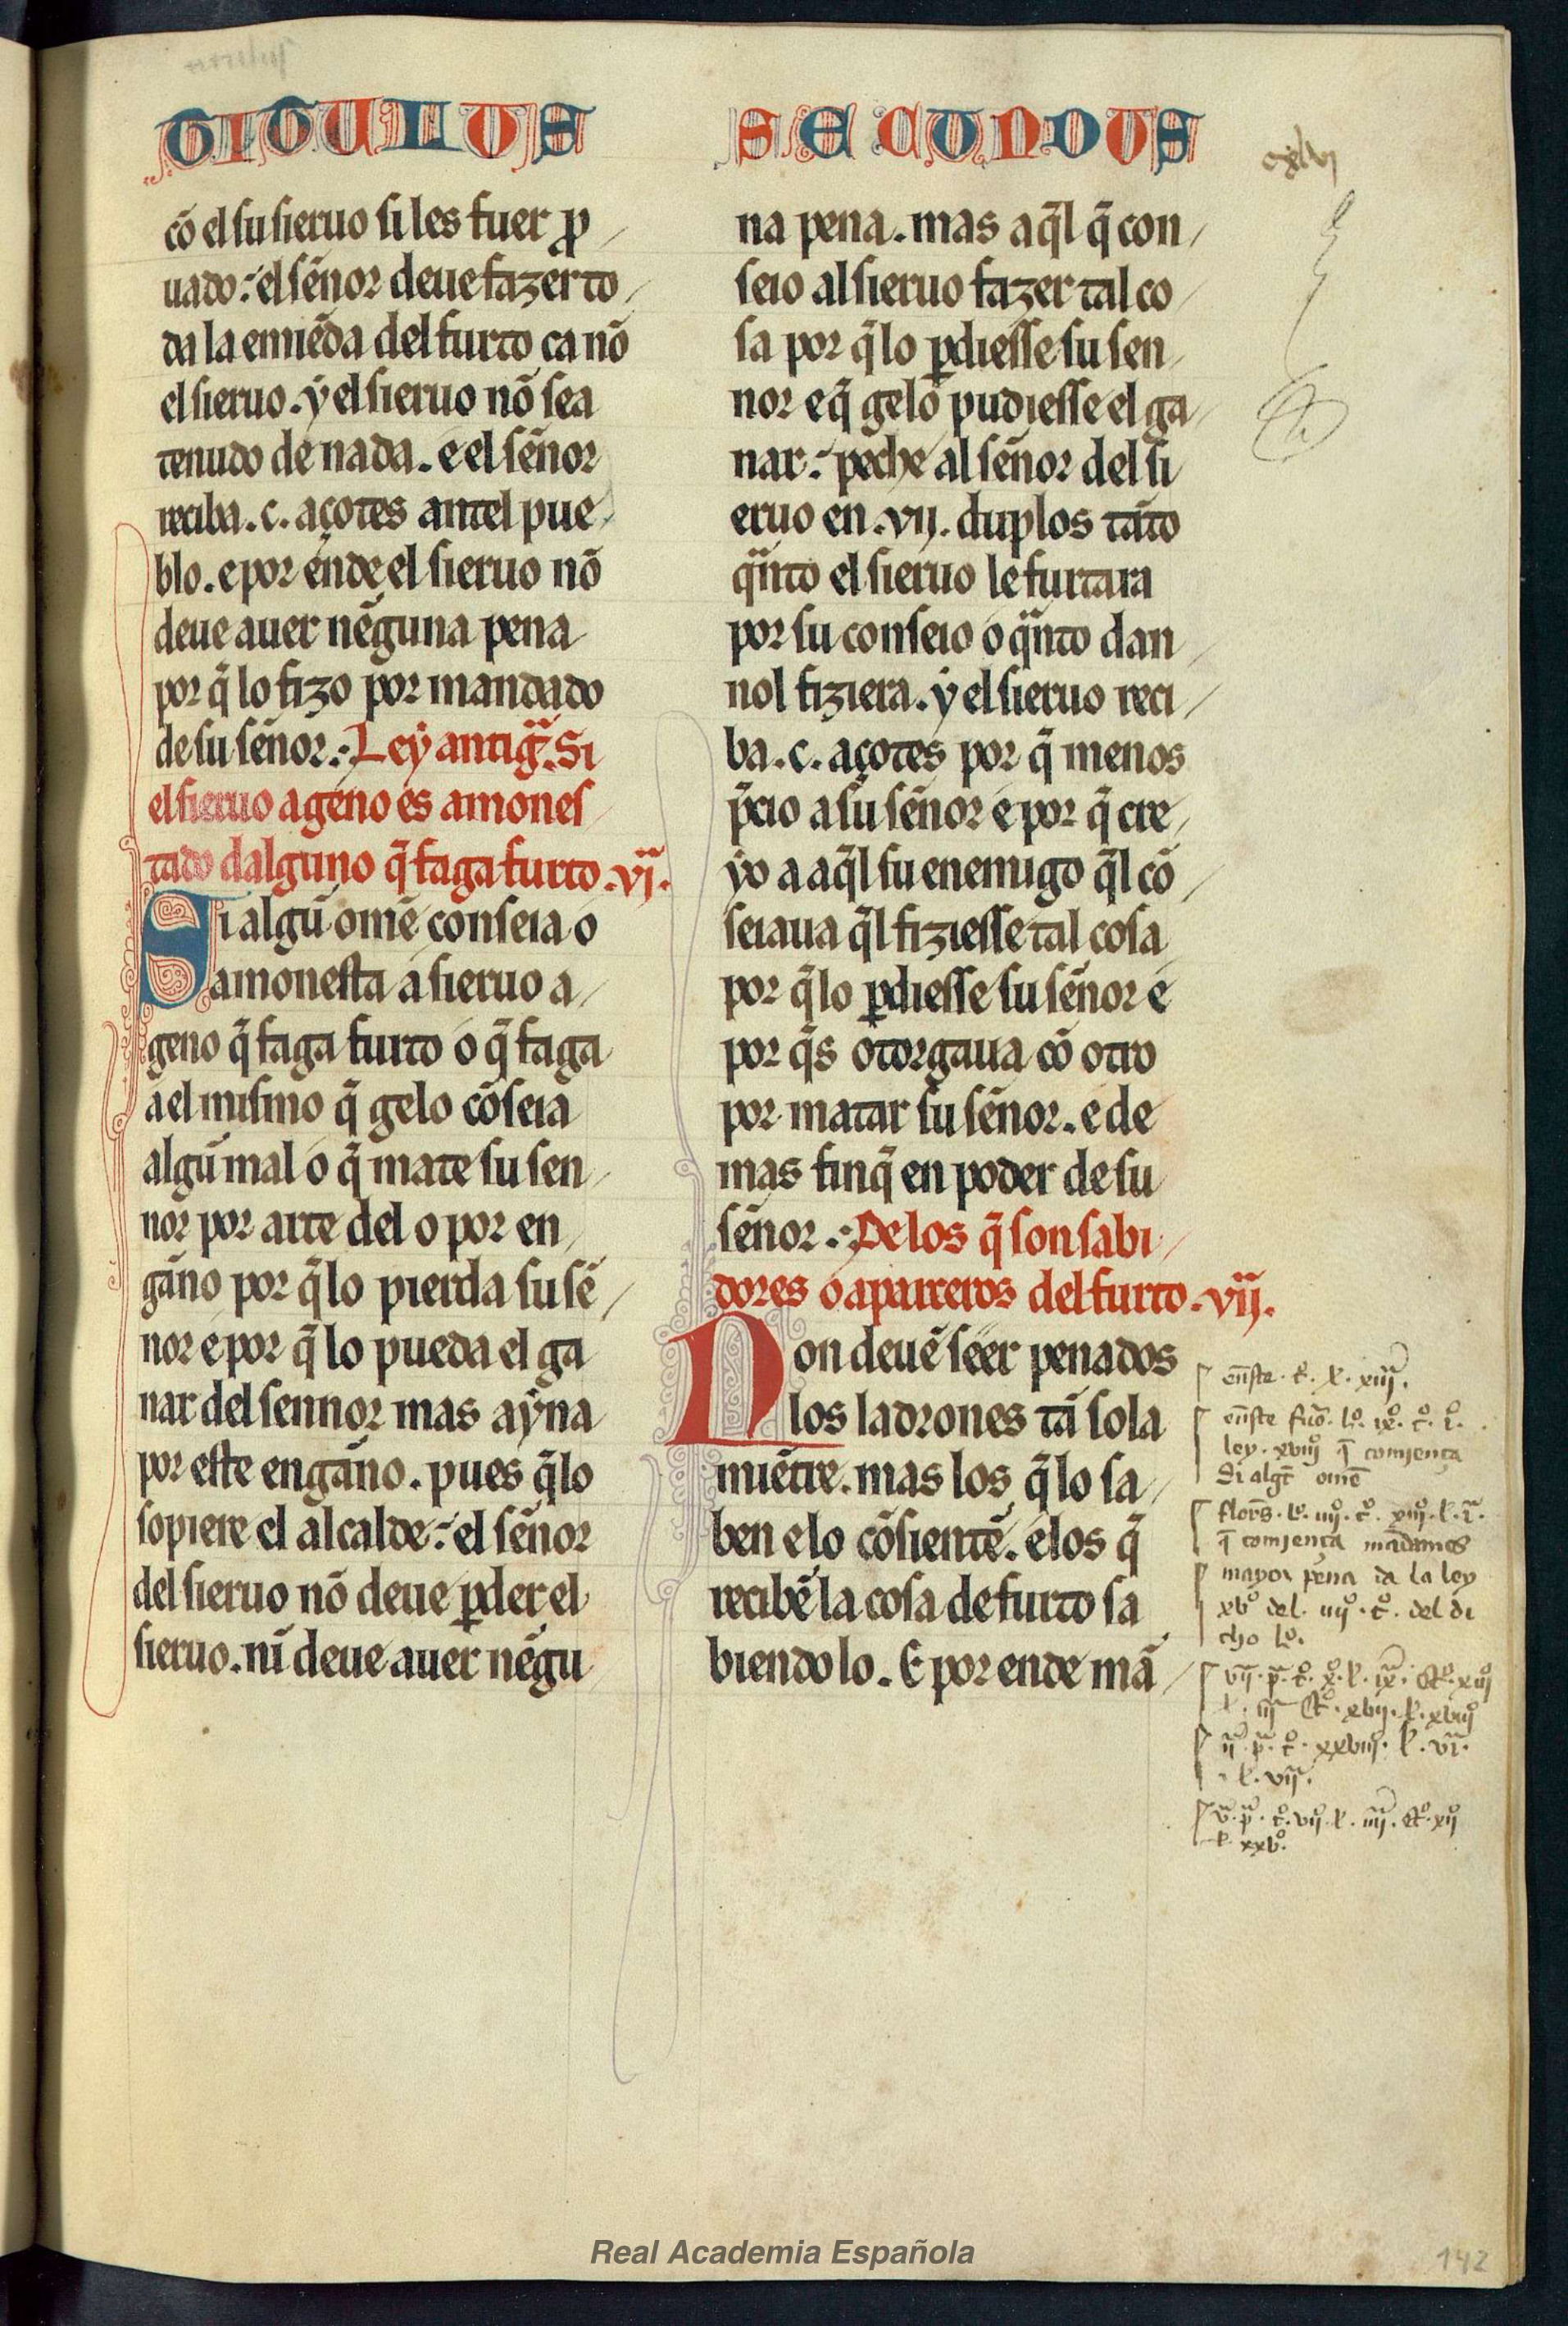 TITULUS SECUNDUS
cõ el su sieruo si les fuer ꝓ
uado: el sẽnor deue fazer to
da la emiẽda del furto ca nõ
el sieruo. ẏ el sieruo nõ sea
tenudo de nada. e el sẽnor
reciba .c. açotes antel pue
blo. e por ende el sieruo nõ
deue auer nẽguna pena
por q̃ lo fizo por mandado
de su sẽnor. Leẏ antigᷓ. Si
el sieruo ageno es amones
tado dalguno q̃ faga furto .vj.
Si algũ omẽ conseia o
amonesta a sieruo a
geno q̃ faga furto o q̃ faga
a el mismo q̃ gelo cõseia
algũ mal o q̃ mate su sen
nor por arte del o por en
gãno por q̃ lo pierda su sẽ
nor e por q̃ lo pueda el ga
nar del sennor mas aẏna
por este engãno. pues q̃ lo
sopiere el alcalde: el sẽnor
del sieruo nõ deue ꝑder el
sieruo. nĩ deue auer nẽgu
na pena. mas aq̃l q̃ con
seio al sieruo fazer tal co
sa por q̃ lo ꝑdiesse su sen
nor e q̃ gelo pudiesse el ga
nar: peche al sẽnor del si
eruo en .vij. duplos tãto
qᷓnto el sieruo le furtara
por su conseio o qᷓnto dan
nol fiziera. ẏ el sieruo reci
ba .c. açotes por q̃ menos
p̃cio a su sẽnor e por q̃ cre
ẏo a aq̃l su enemigo q̃l cõ
seiaua q̃l fiziesse tal cosa
por q̃ lo ꝑdiesse su sẽnor e
por q̃s otorgaua cõ otro
por matar su sẽnor. e de
mas finq̃ en poder de su
sẽnor. De los q̃ son sabi
dores o aparceros del furto .vij.
Non deuẽ seer penados
los ladrones tã sola
miẽtre. mas los q̃ lo sa
ben e lo cõsientẽ. e los q̃
recibẽ la cosa de furto sa
biendo lo. E por ende mã
cxlvj
ley. xviij q̃ comjença
Si algt̃ omẽ
q̃ comjença mãdamos
mayor pena da la ley
xvº del. iiijº. tº. del di
cho lº.
Real Academia Española
142